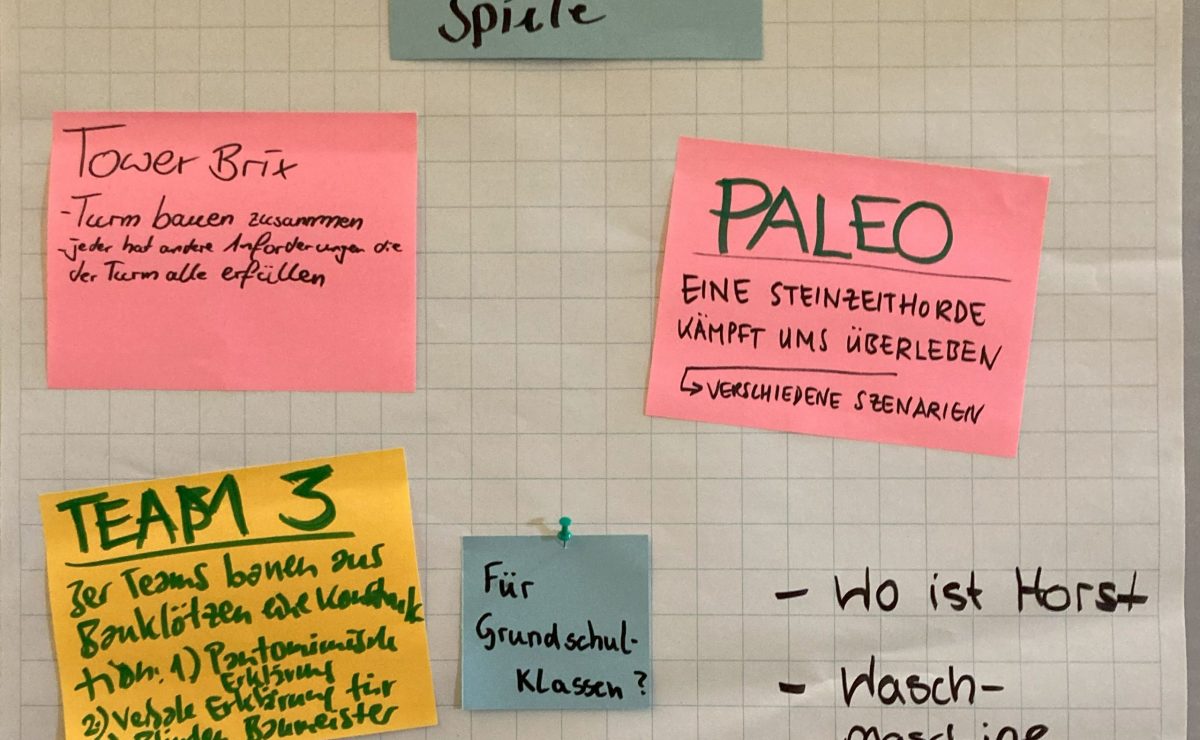 Spiele
Tower Brix
- Turm bauen zusammen
- jeder hat andere Anforderungen die
der Turm alle erfüllen
PALEO
EINE STEINZEITHORDE
KÄMPFT UMS ÜBERLEBEN
↳ VERSCHIEDENE SZENARIEN
TEAM 3
3er Teams bauen aus
Bauklötzen eine Konstruk
tion. 1) Pantomimische
Erklärung
2) Verbale Erklärung für
Blinden Baumeister
Für
Grundschul-
Klassen?
- Wo ist Horst
- Wasch-
maschine